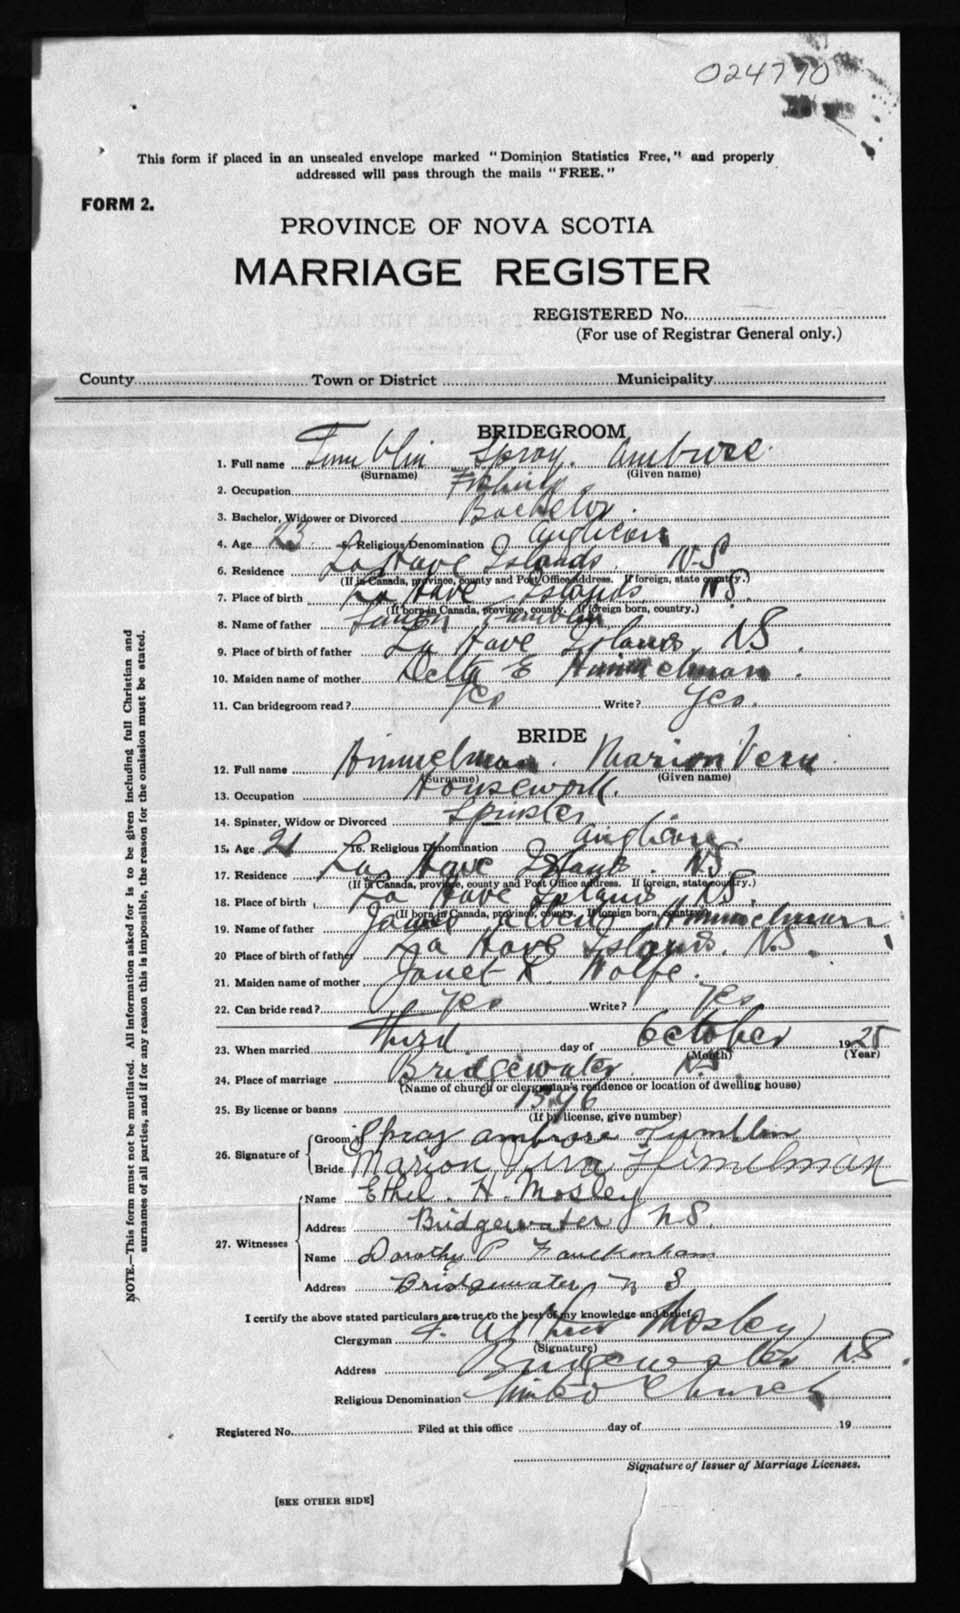 024770
This form if placed in an unsealed envelope marked "Dominion Statistics Free," and properly
addressed will pass through the mails "FREE."
FORM 2.
PROVINCE OF NOVA SCOTIA
MARRIAGE REGISTER
REGISTERED No.
(For use of Registrar General only.)
County Town or District Municipality
BRIDEGROOM
1. Full name Tumblin Spray Ambrose
(Surname) (Given name)
2. Occupation Fishing
3. Bachelor, Widower or Divorced Bachelor
4. Age 23 5. Religious Denomination Anglican
6. Residence La Have Islands N-S
(If in Canada, province, county and Post Office address. If foreign, state country.)
7. Place of birth La Have Islands N.S.
(If born in Canada, province, county. If foreign born, country.)
8. Name of father Tumblin
9. Place of birth of father La Have Islands, NS.
10. Maiden name of mother E Himmelman.
11. Can bridegroom read? Yes Write? Yes.
BRIDE
12. Full name Himmelman. Marion Vera
(Surname) (Given name)
13. Occupation Housework.
14. Spinster, Widow or Divorced Spinster
15. Age 21 16. Religious Denomination Anglican.
17. Residence La Have Islands. NS
(If in Canada, province, county and Post Office address. If foreign, state country.)
18. Place of birth La Have Islands NS.
(If born in Canada, province, county. If foreign born, country.)
19. Name of father James Albert Himmelman
20 Place of birth of father La Have Islands. N.S.
21. Maiden name of mother Janet R. Wolfe.
22. Can bride read? Yes Write? Yes
23. When married Third day of October 1925
(Month) (Year)
24. Place of marriage Bridgewater N.S.
(Name of church or clergyman's residence or location of dwelling house)
25. By license or banns 1596
(If by license, give number)
26. Signature of Groom Spray Ambrose Tumblin
Bride Marion Vera Himmelman
27. Witnesses Name Ethel. H. Mosley
Address Bridgewater NS.
Name Dorothy P Faulkenham
Address Bridgewater, N S
I certify the above stated particulars are true to the best of my knowledge and belief.
Clergyman Mosley
(Signature)
Address Bridgewater NS.
Religious Denomination United Church
Registered No. Filed at this office day of 19
Signature of Issuer of Marriage Licenses.
[SEE OTHER SIDE]
NOTE.—This form must not be mutilated. All information asked for is to be given including full Christian and
surnames of all parties, and if for any reason this is impossible, the reason for the omission must be stated.